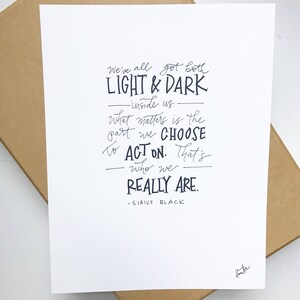 we've all got both
LIGHT & DARK
inside us.
What matters is the
part we CHOOSE
to ACT ON. That's
who we
REALLY ARE.
- SIRIUS BLACK